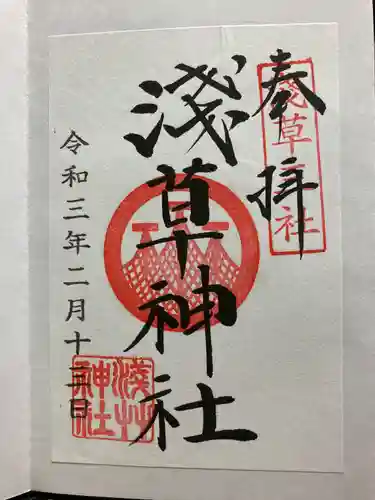 奉拝
浅草神社
淺草神社
令和三年二月十三日
淺草神社